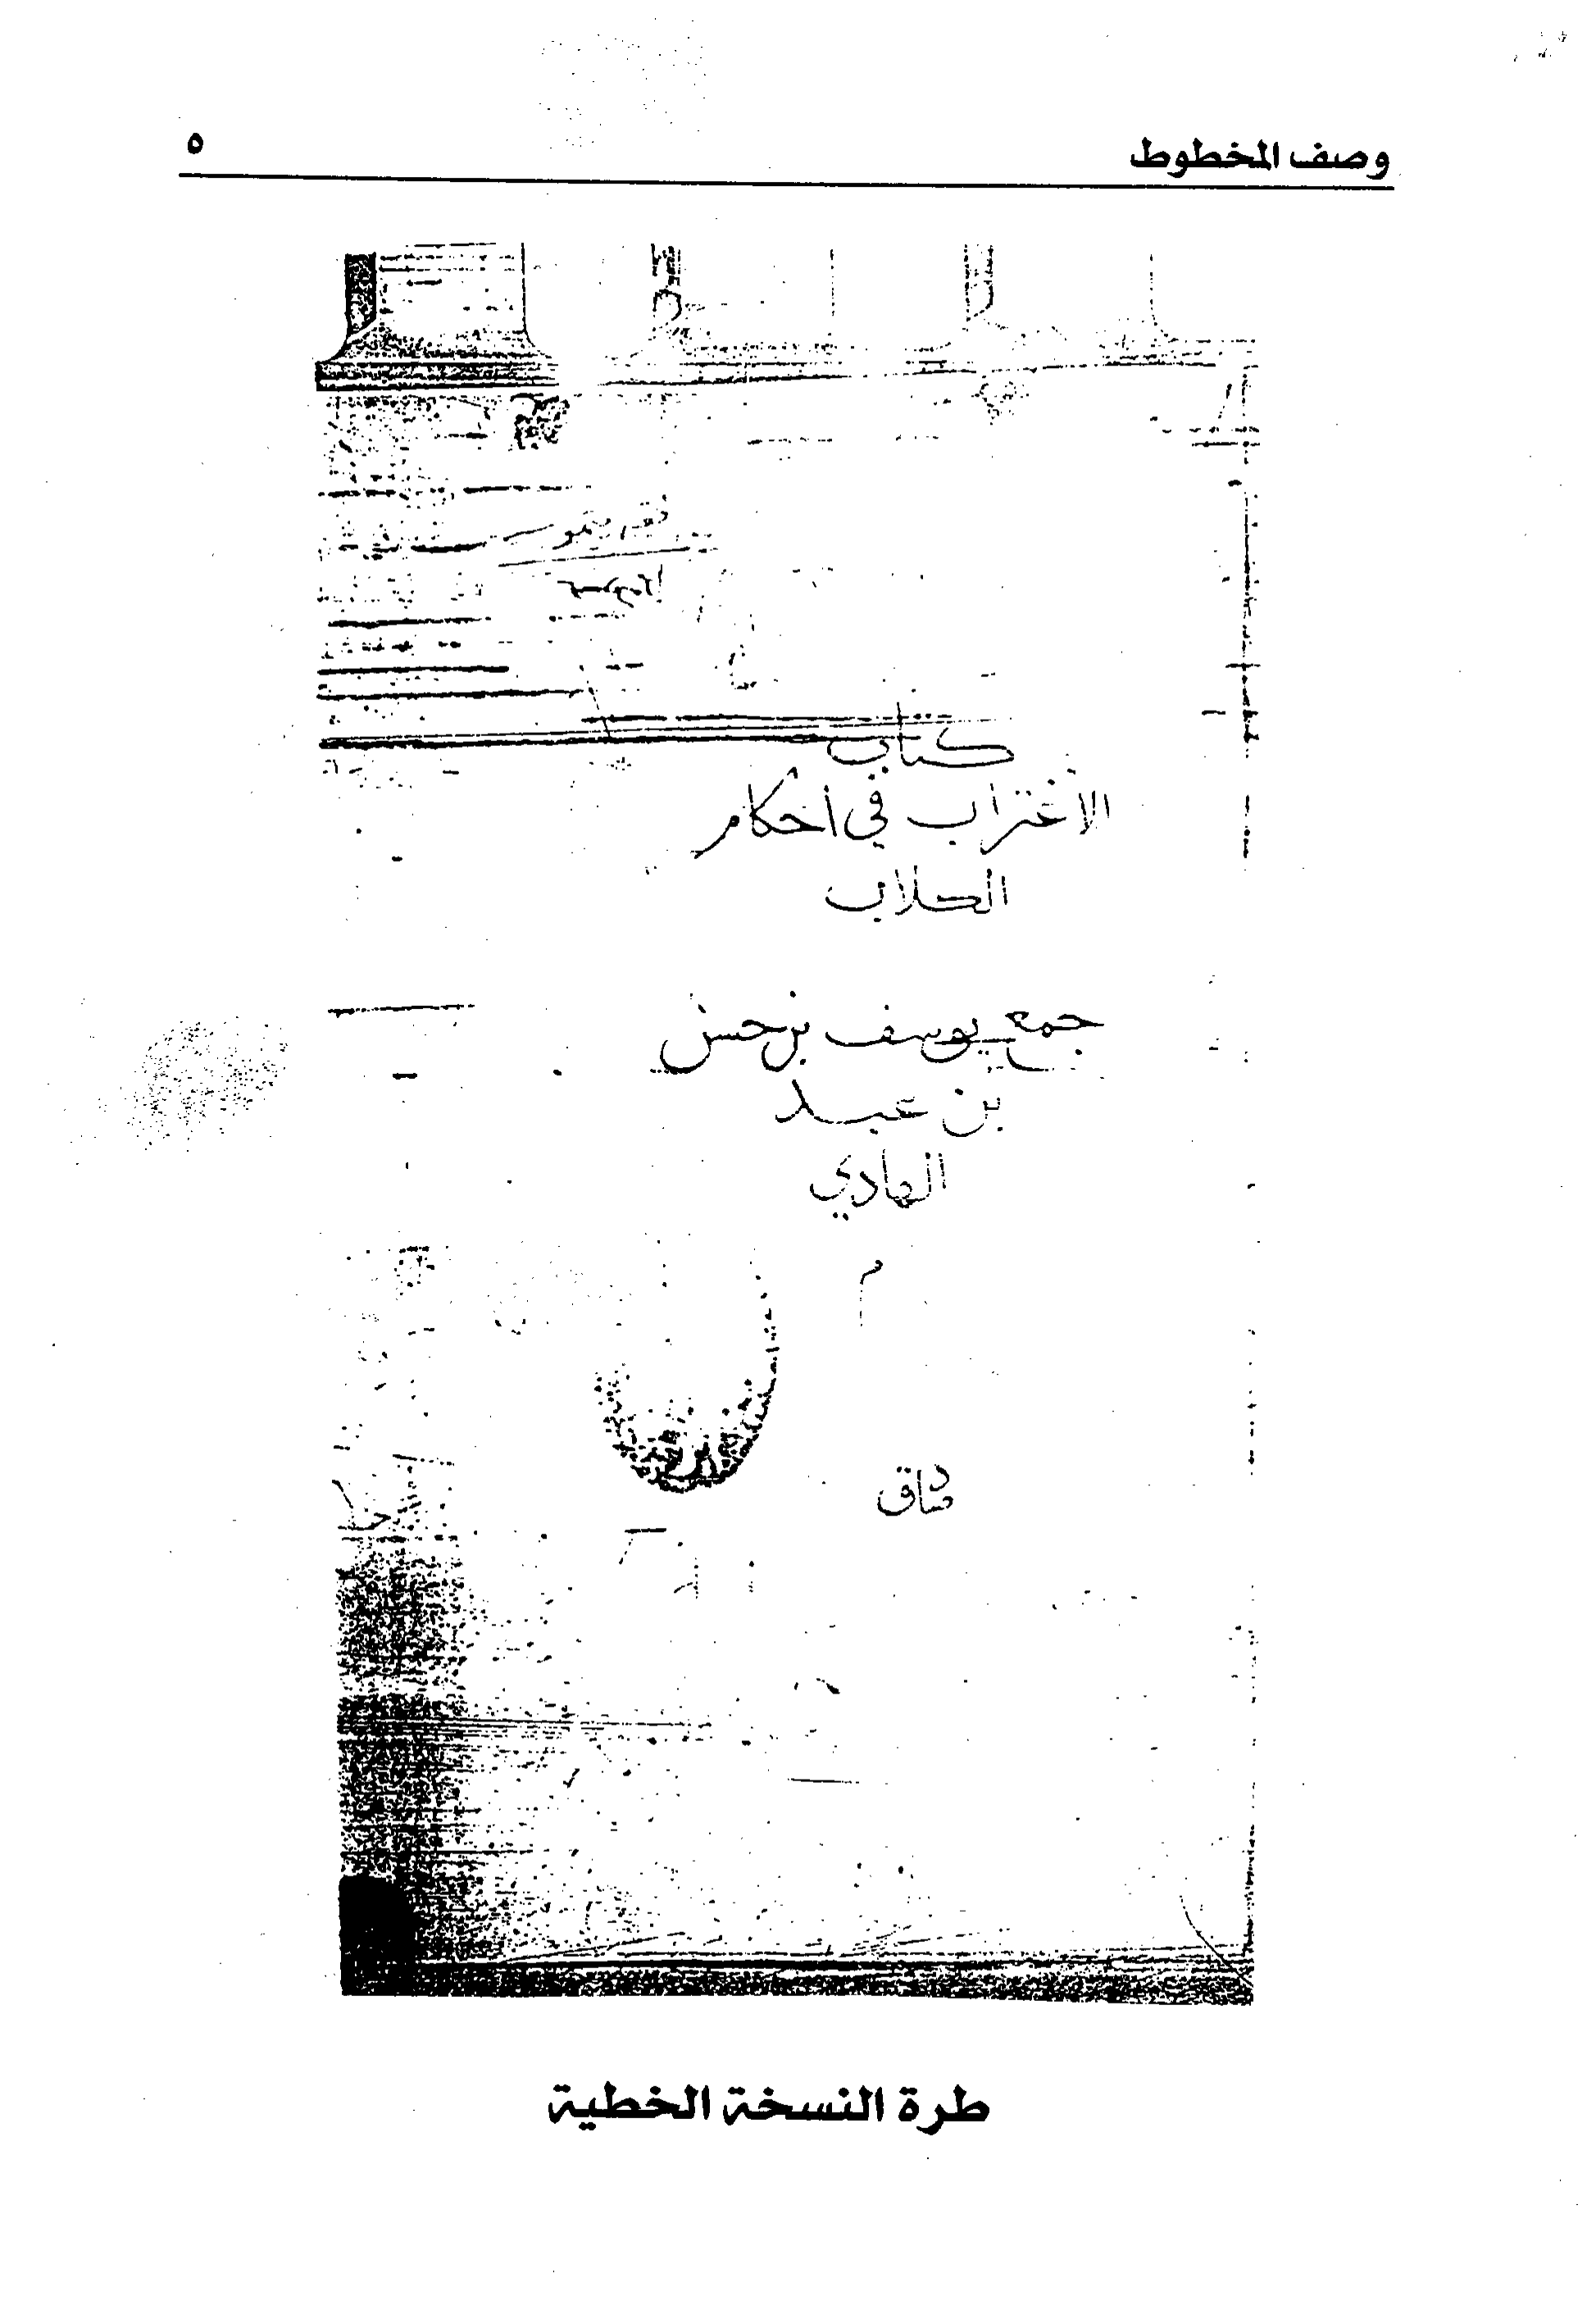 وصف المخطوط ٥
كتاب
الاغتراب في أحكام
الكلاب
جمع يوسف بن حسن
بن عبد
الهادي
طرة النسخة الخطية